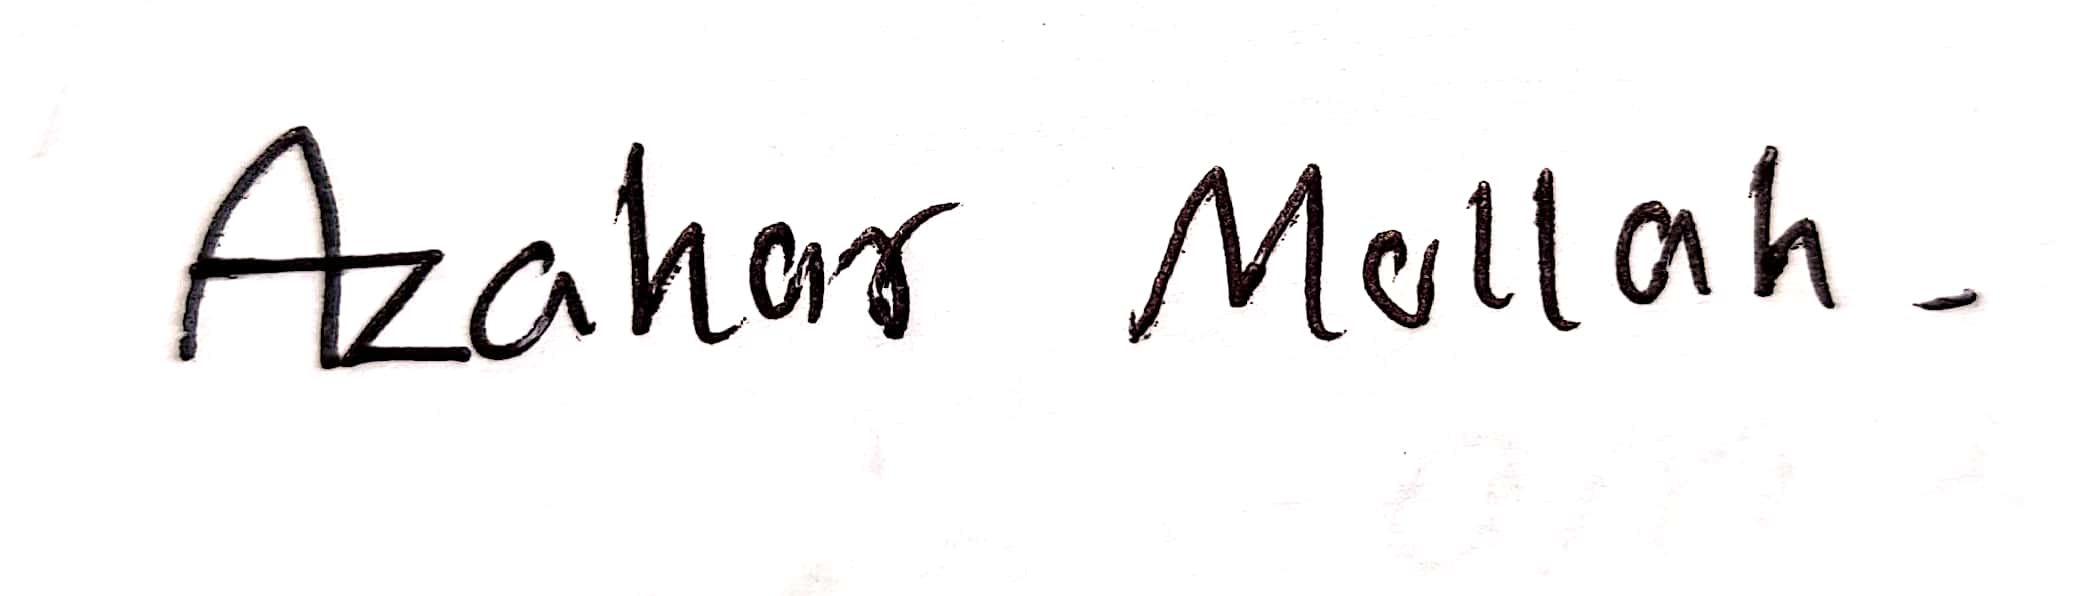 Azahar Mollah -